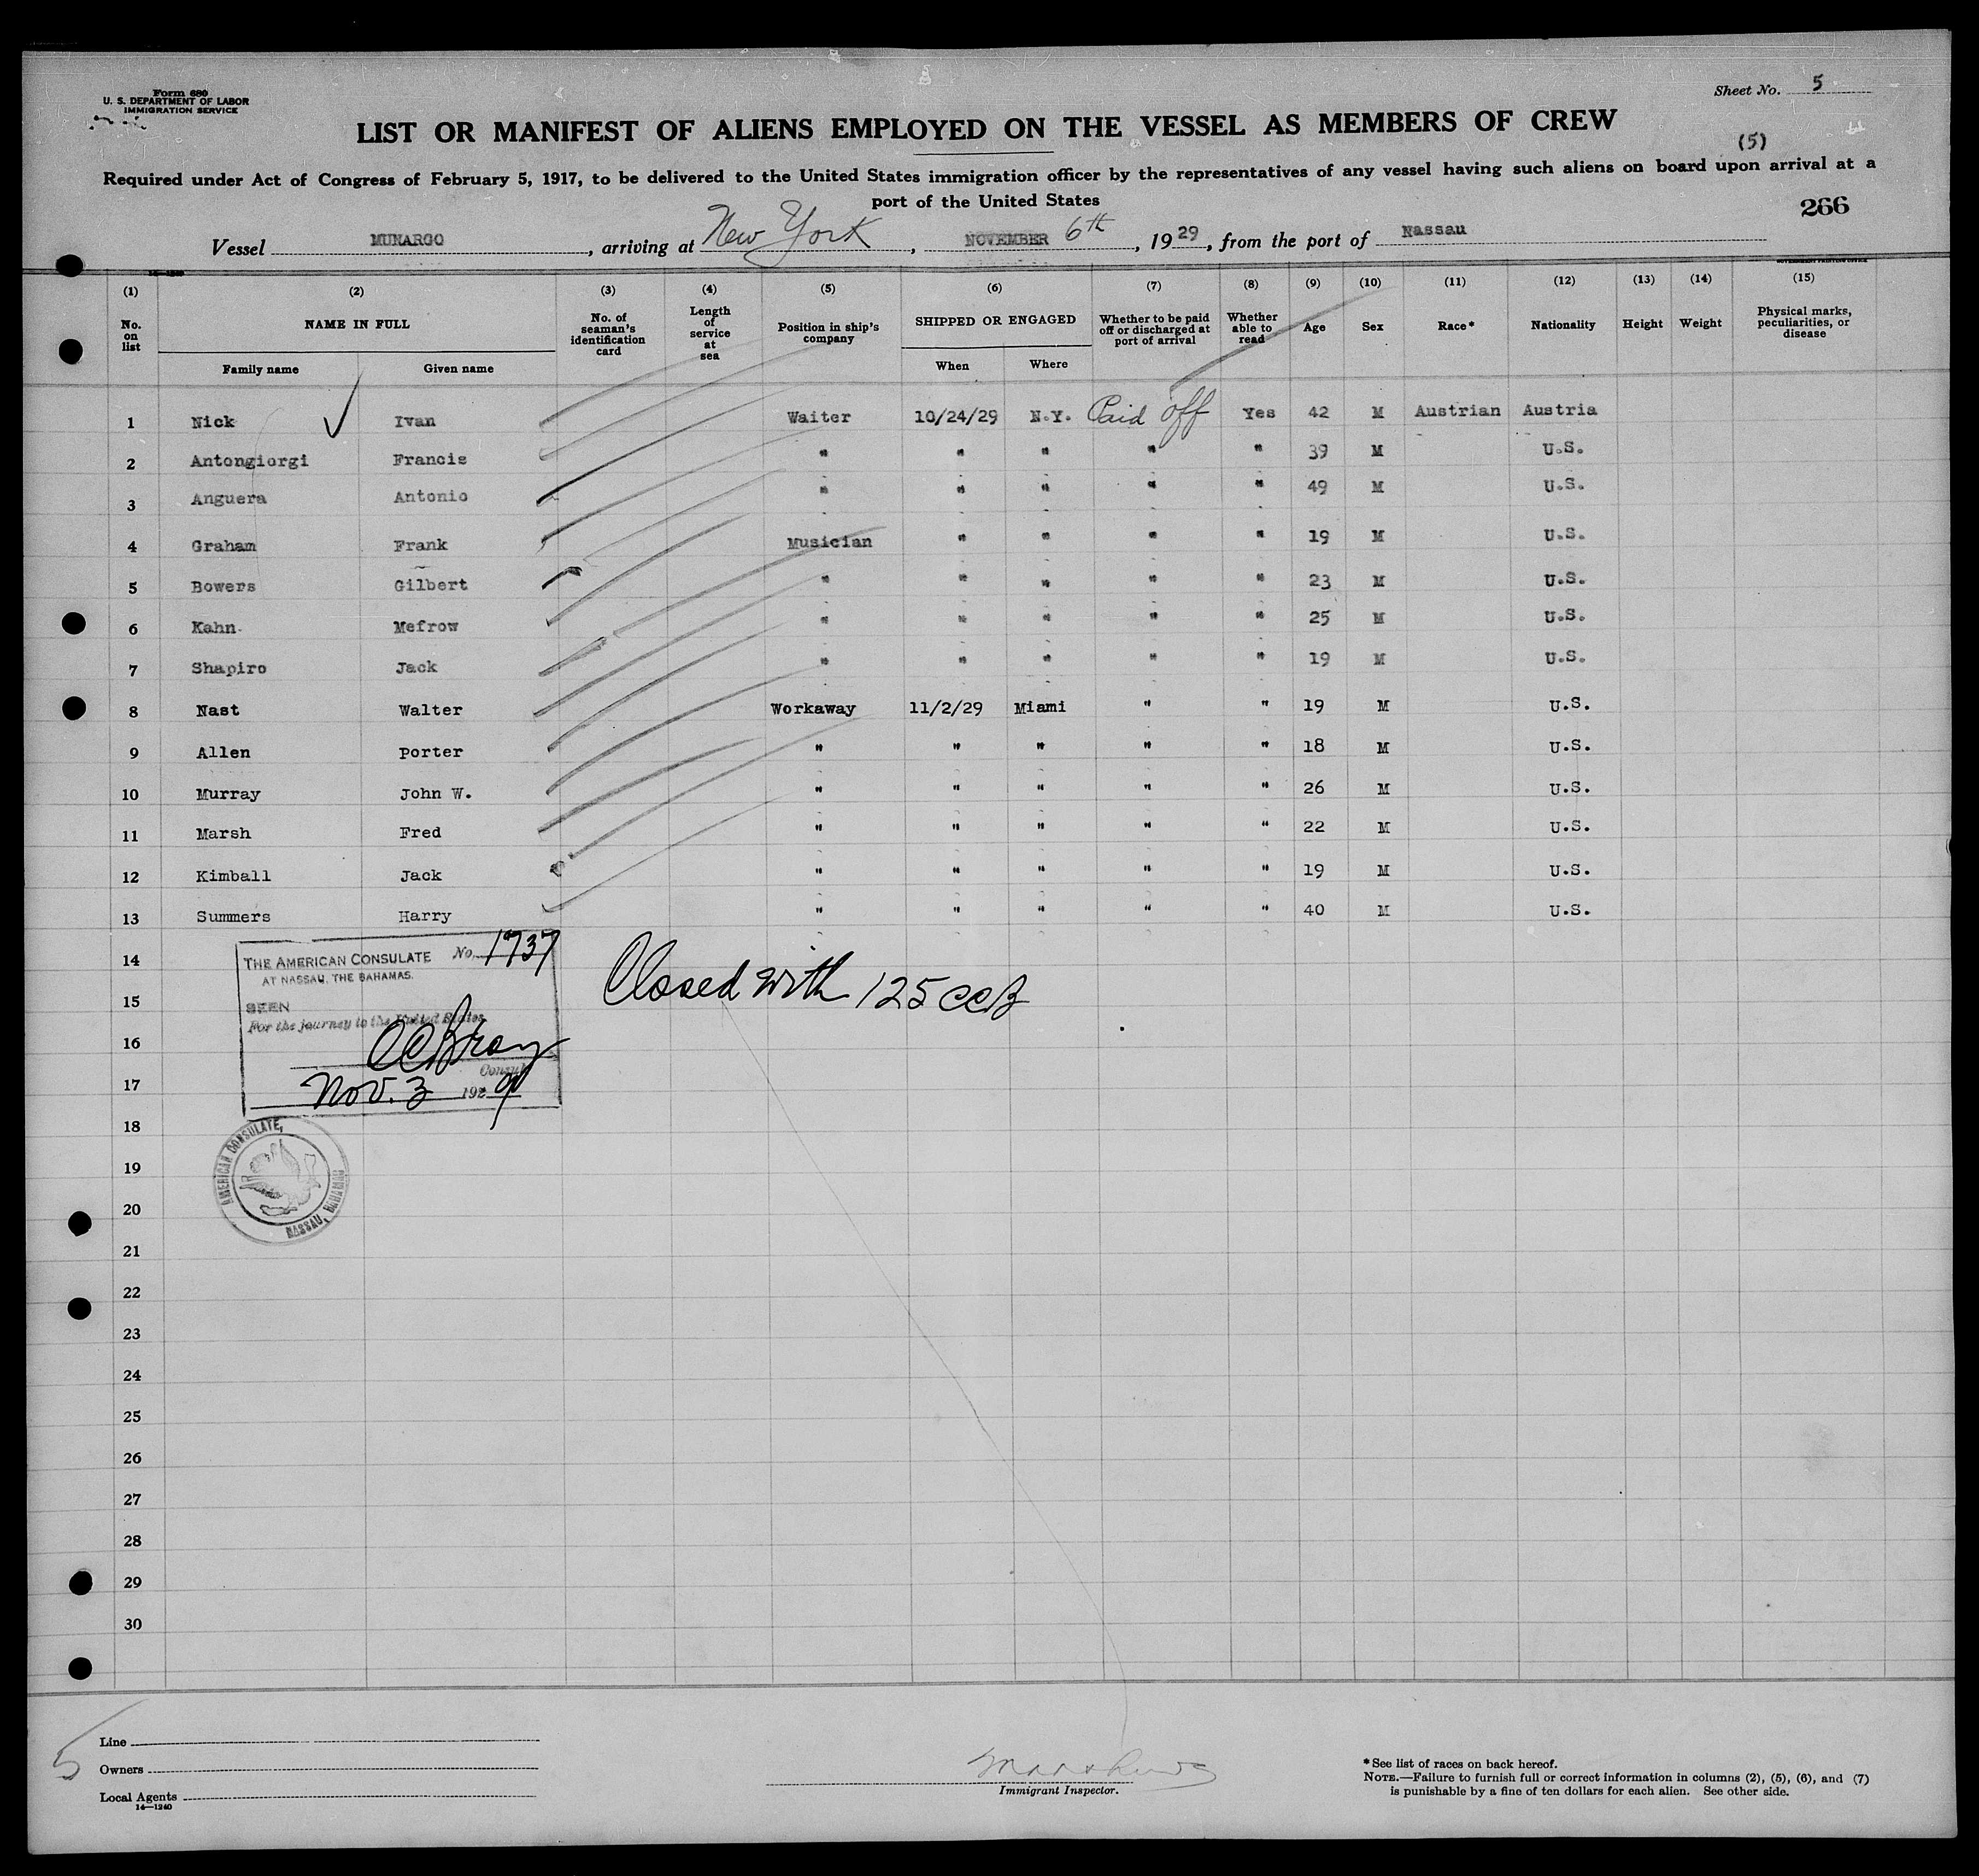 Form 680
U. S. DEPARTMENT OF LABOR
IMMIGRATION SERVICE
Sheet No. 5
LIST OR MANIFEST OF ALIENS EMPLOYED ON THE VESSEL AS MEMBERS OF CREW
(5)
Required under Act of Congress of February 5, 1917, to be delivered to the United States immigration officer by the representatives of any vessel having such aliens on board upon arrival at a
port of the United States
266
Vessel MUNARGO, arriving at New York, NOVEMBER 6th, 1929, from the port of Nassau
(1) (2) (3) (4) (5) (6) (7) (8) (9) (10) (11) (12) (13) (14) (15)
No. on list NAME IN FULL No. of seaman's identification card Length of service at sea Position in ship's company SHIPPED OR ENGAGED Whether to be paid off or discharged at port of arrival Whether able to read Age Sex Race* Nationality Height Weight Physical marks, peculiarities, or disease
Family name Given name When Where
1 Nick Ivan Waiter 10/24/29 N.Y. Paid off Yes 42 M Austrian Austria
2 Antongiorgi Francis " " " " " 39 M U.S.
3 Anguera Antonio " " " " " 49 M U.S.
4 Graham Frank Musician " " " " 19 M U.S.
5 Bowers Gilbert " " " " " 23 M U.S.
6 Kahn Mefrow " " " " " 25 M U.S.
7 Shapiro Jack " " " " " 19 M U.S.
8 Nast Walter Workaway 11/2/29 Miami " " 19 M U.S.
9 Allen porter " " " " " 18 M U.S.
10 Murray John W. " " " " " 26 M U.S.
11 Marsh Fred " " " " " 22 M U.S.
12 Kimball Jack " " " " " 19 M U.S.
13 Summers Harry " " " " " 40 M U.S.
14
15
16
17
18
19
20
21
22
23
24
25
26
27
28
29
30
THE AMERICAN CONSULATE No. 1737
AT NASSAU, THE BAHAMAS.
SEEN
For the journey to the United States
Consul
Nov. 3 1929
Closed with 125 CCB
AMERICAN CONSULATE,
NASSAU, BAHAMAS
5
Line
Owners
Local Agents
14—1240
Immigrant Inspector.
*See list of races on back hereof.
NOTE.—Failure to furnish full or correct information in columns (2), (5), (6), and (7)
is punishable by a fine of ten dollars for each alien. See other side.